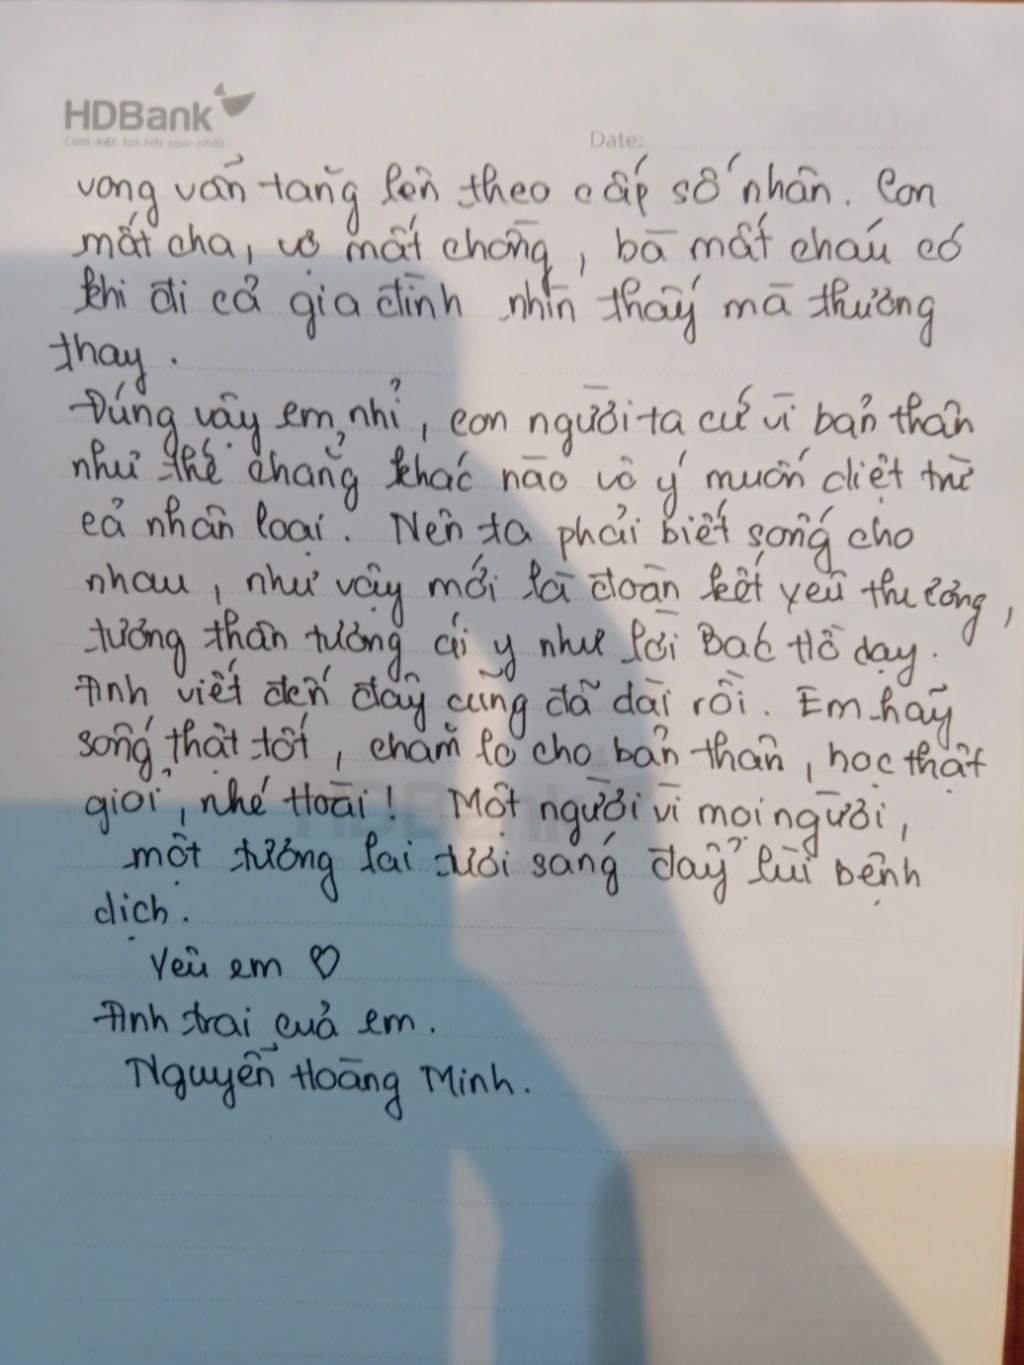 HDBank
Cam kết lợi ích cao nhất
Date:
vong vẫn tăng lên theo cấp số nhân. Con
mất cha, vợ mất chồng, bà mất cháu có
khi đi cả gia đình nhìn thấy mà thương
thay.
Đúng vậy em nhỉ, con người ta cứ vì bản thân
như thế chẳng khác nào vô ý muốn diệt trừ
cả nhân loại. Nên ta phải biết sống cho
nhau, như vậy mới là đoàn kết yêu thương,
tương thân tương ái y như lời Bác Hồ dạy.
Anh viết đến đây cũng đã dài rồi. Em hãy
sống thật tốt, chăm lo cho bản thân, học thật
giỏi, nhé Hoài! Một người vì mọi người,
một tương lai tươi sáng đẩy lùi bệnh
dịch.
Yêu em ♡
Anh trai của em.
Nguyễn Hoàng Minh.